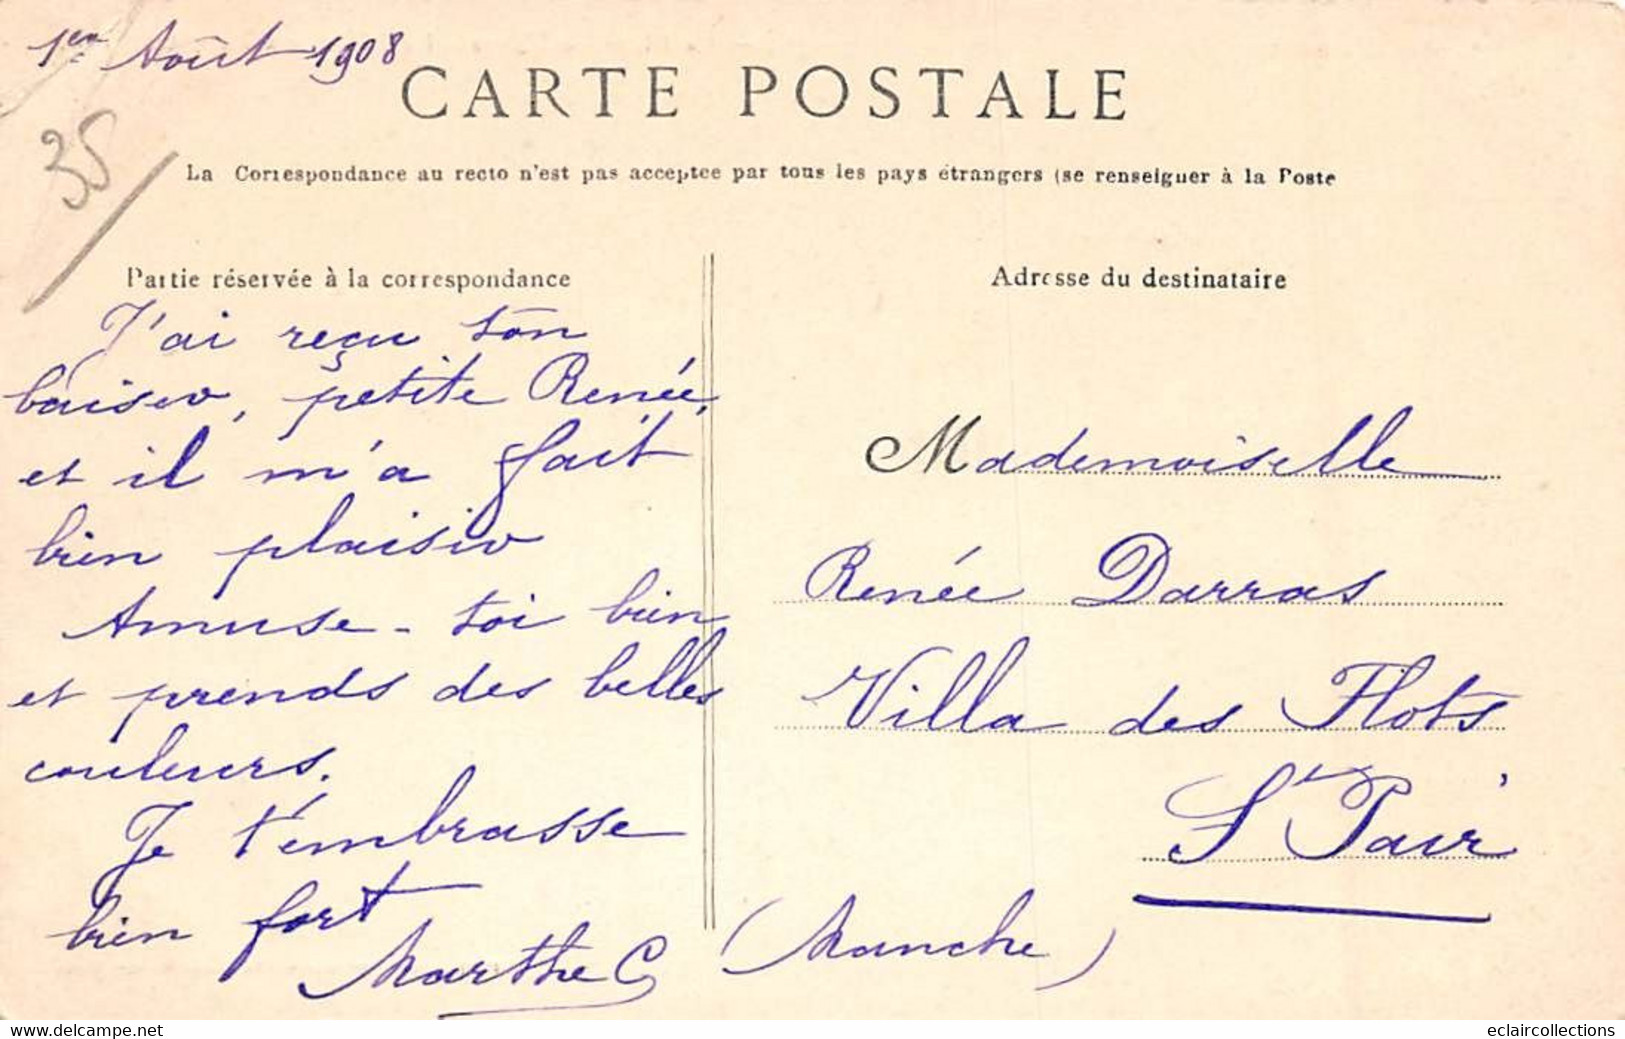 1er Août 1908
CARTE POSTALE
35
La Correspondance au recto n'est pas acceptée par tous les pays étrangers (se renseigner à la Poste
Partie réservée à la correspondance
J'ai reçu ton
baiser, petite Renée,
et il m'a fait
bien plaisir
Amuse-toi bien
et prends des belles
couleurs.
Je t'embrasse
bien fort
Marthe C
Adresse du destinataire
Mademoiselle
Renée Darras
Villa des Flots
St Pair
(Manche)
https://www.delcampe.net
eclaircollections